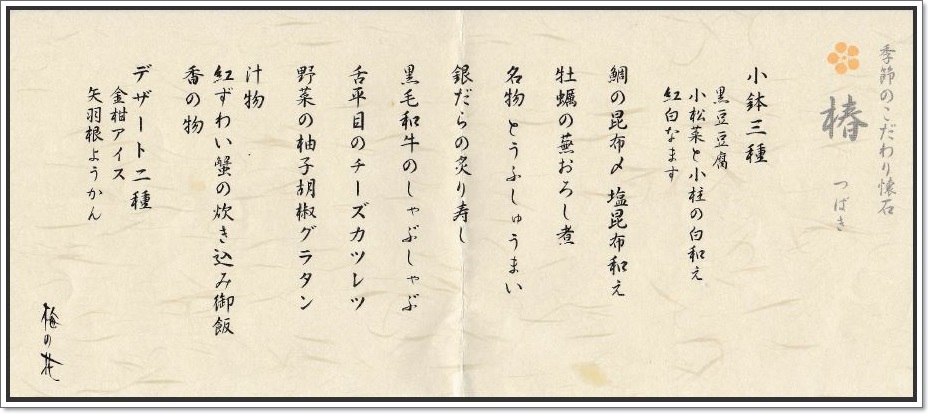 季節のこだわり懐石
椿
つばき
小鉢三種
黒豆豆腐
小松菜と小柱の白和え
紅白なます
鯛の昆布〆塩昆布和え
牡蠣の蕪おろし煮
名物 とうふしゅうまい
銀だらの炙り寿し
黒毛和牛のしゃぶしゃぶ
舌平目のチーズカツレツ
野菜の柚子胡椒グラタン
汁物
紅ずわい蟹の炊き込み御飯
香の物
デザート二種
金柑アイス
矢羽根ようかん
梅の花